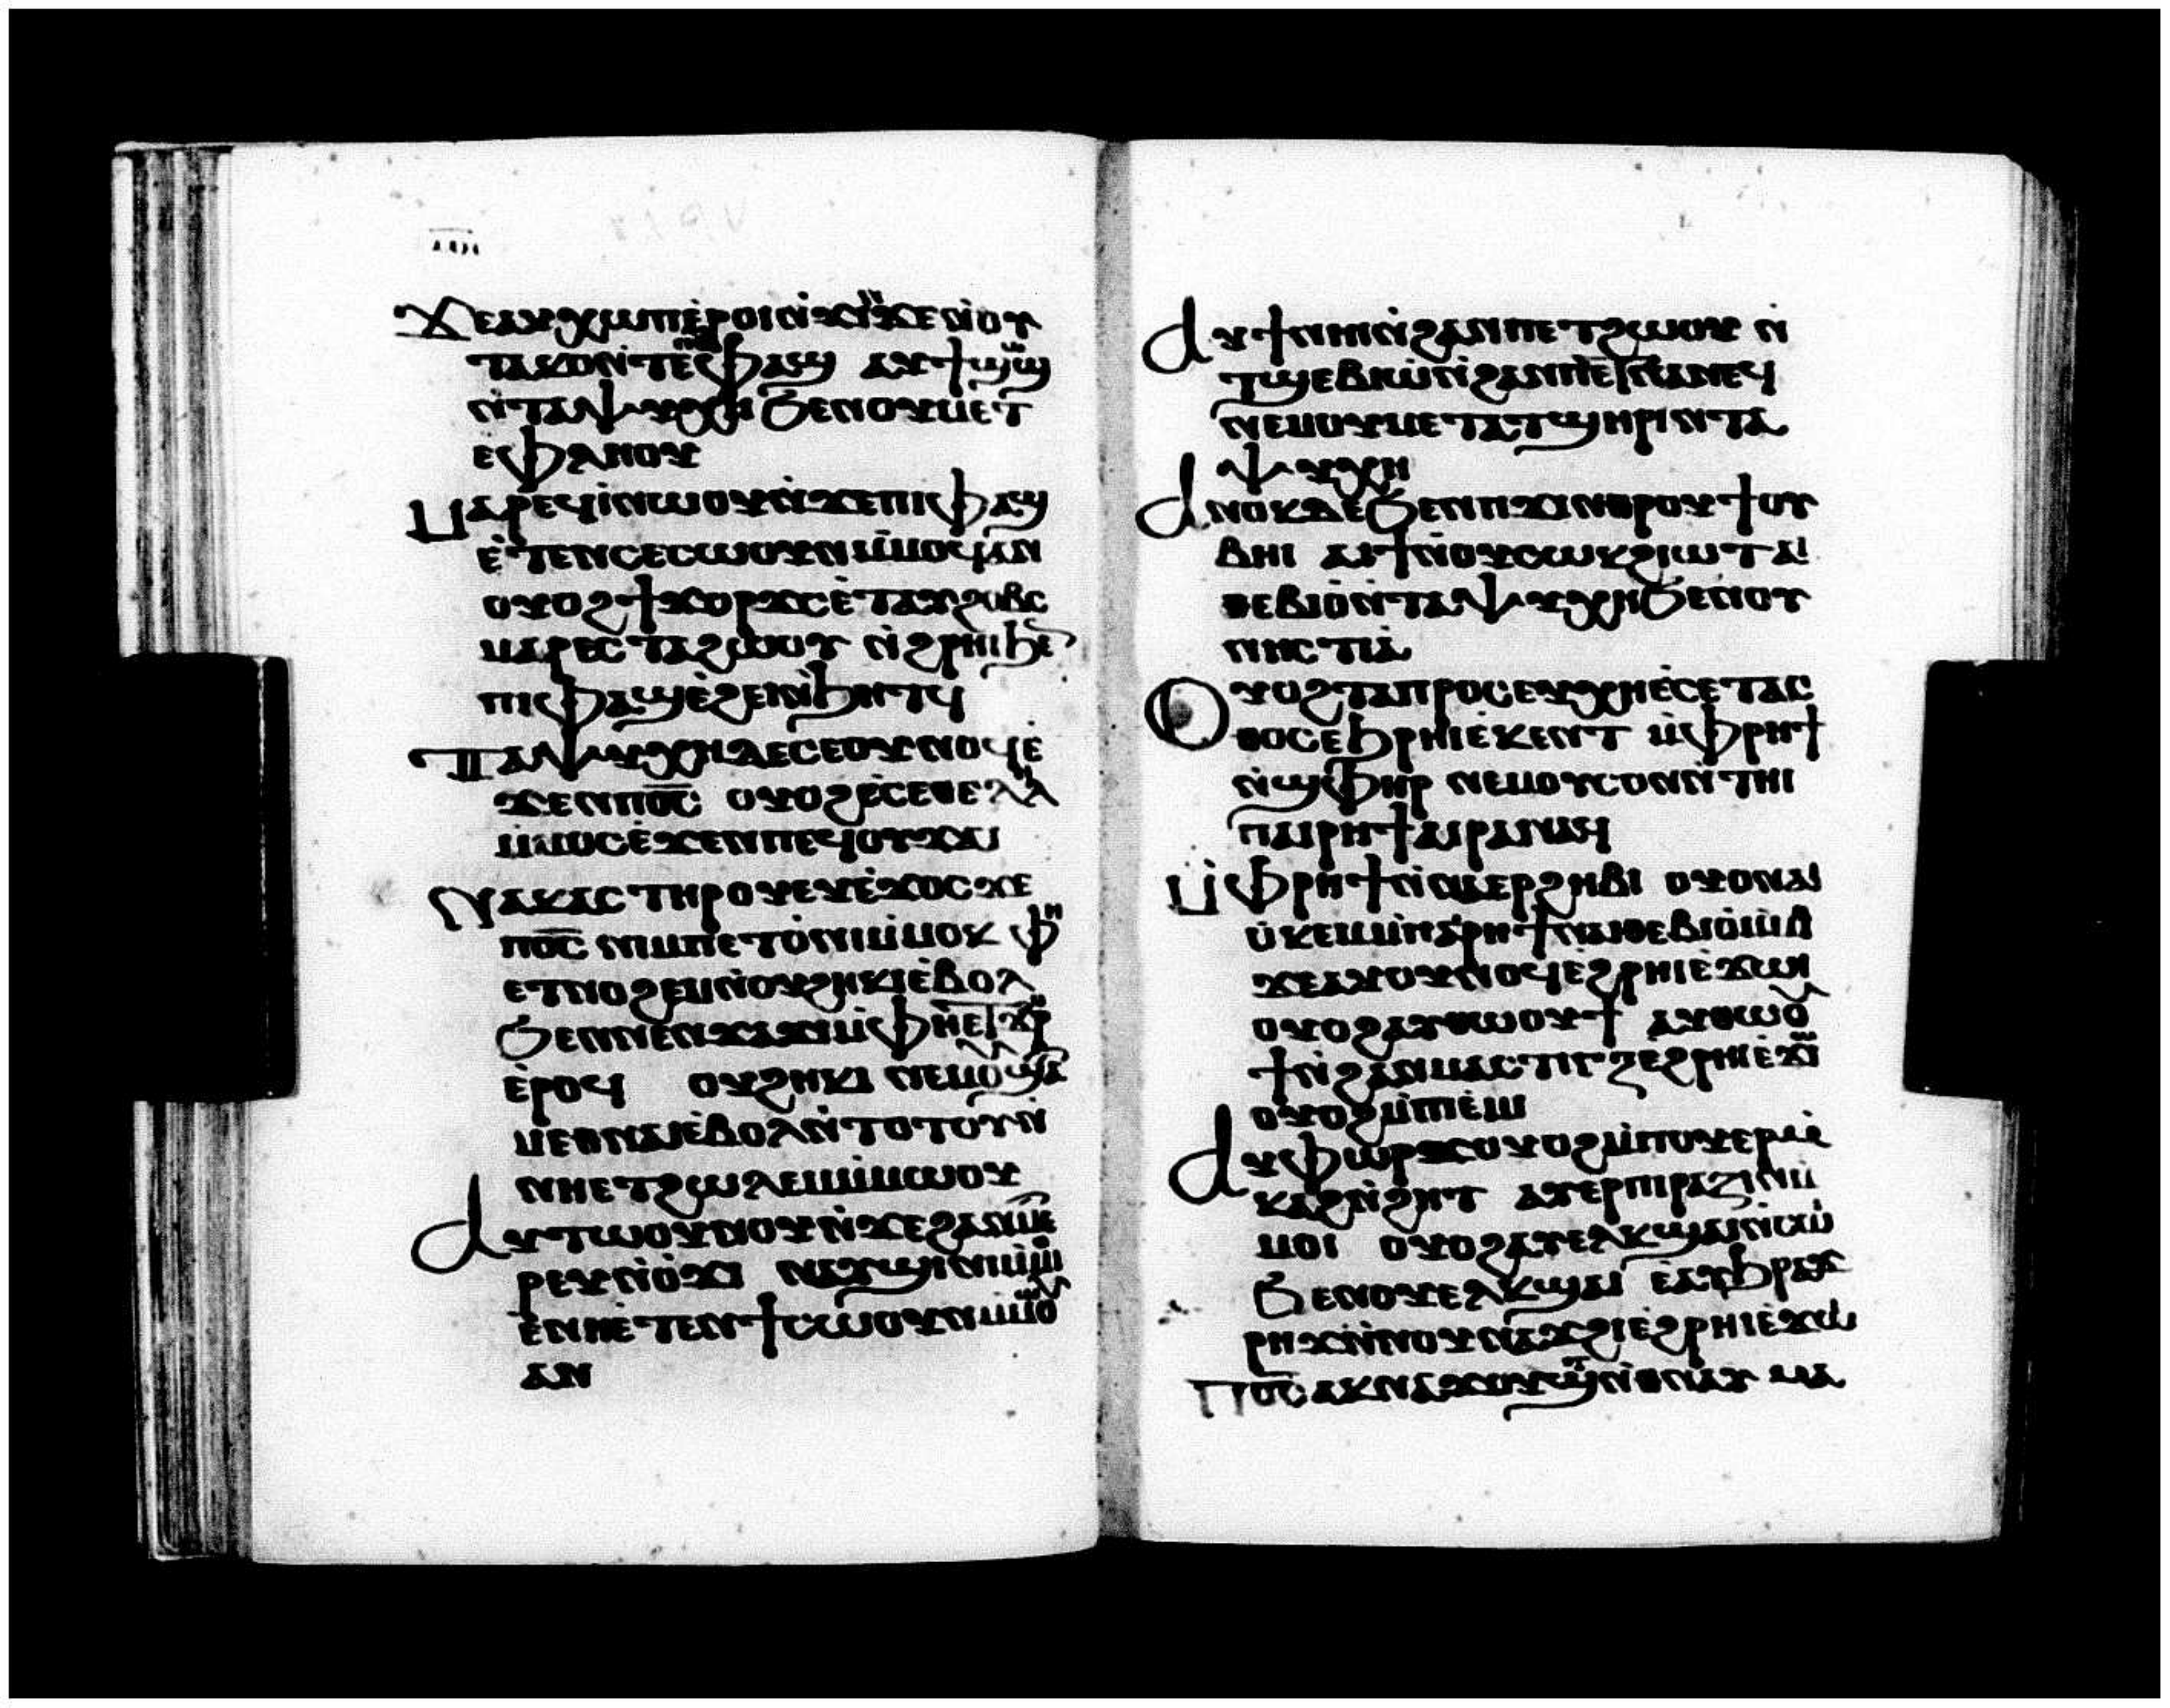 ϫⲉⲁⲩⲭⲱⲡⲉ̇ⲣⲟⲓⲛ̇ϫⲓⲛϫⲉⲛ̇ⲟⲩ
ⲧⲁⲕⲟⲛ̇ⲧⲉⲡⲟⲩⲫⲁϣ ⲁⲩϯϣⲱϣ
ⲛ̇ⲧⲁⲯⲩⲭⲏϧⲉⲛⲟⲩⲙⲉⲧ
ⲉⲫⲗⲏⲟⲩ
ⲙⲁⲣⲉϥⲓ̇ⲛⲱⲟⲩⲛ̇ϫⲉⲡⲓⲫⲁϣ
ⲉ̇ⲧⲉⲛⲥⲉⲥⲱⲟⲩⲛⲙ̇ⲙⲟϥⲁⲛ
ⲟⲩⲟϩϯϫⲟⲣϫⲥⲉ̇ⲧⲁⲩϩⲟⲃⲥ
ⲙⲁⲣⲉⲥⲧⲁϩⲱⲟⲩ ⲛ̇ϩⲣⲏⲓϧⲉⲛ
ⲡⲓⲫⲁϣⲉ̇ϩⲉⲓⲛ̇ϧⲏⲧϥ
ⲧⲁⲯⲩⲭⲏⲇⲉⲥⲉⲟⲩⲛⲟϥⲉ̇
ϫⲉⲛⲡⲟ̅ⲥ̅ ⲟⲩⲟϩⲉ̇ⲥⲉⲑⲉⲗⲏⲗ
ⲙ̇ⲙⲟⲥⲉ̇ϫⲉⲛⲡⲉϥⲟⲩϫⲁⲓ
ⲛⲁⲕⲁⲥⲧⲏⲣⲟⲩⲉⲩⲉ̇ϫⲟⲥϫⲉ
ⲡⲟ̅ⲥ̅ ⲛⲓⲙⲡⲉⲧⲟ̇ⲛⲓⲙ̇ⲙⲟⲕ ⲫⲏ
ⲉⲧⲛⲟϩⲉⲙⲛ̇ⲟⲩϩⲏⲕⲓⲉ̇ⲃⲟⲗ
ϧⲉⲛⲛⲉⲛϫⲓϫⲙ̇ⲫⲏⲉⲧϫⲟⲣ
ⲉ̇ⲣⲟϥ ⲟⲩϩⲏⲕⲓ ⲛⲉⲙⲟⲩϣⲁ
ⲙⲉⲑⲛⲁⲓⲉ̇ⲃⲟⲗⲛ̇ⲧⲟⲧⲟⲩⲛ̇
ⲛⲏⲉⲧϩⲱⲗⲉⲙⲙ̇ⲙⲱⲟⲩ
ⲁⲩⲧⲱⲟⲩⲛⲟⲩⲛ̇ϫⲉϩⲁⲛⲙⲉ
ⲣⲉⲩⲛ̇ⲟ̇ϫⲓ ⲛⲁⲩϣⲓⲛⲓⲙ̇ⲙⲟⲓ
ⲉ̇ⲛⲏⲉ̇ⲧⲉⲛϯⲥⲱⲟⲩⲛⲙ̇ⲙⲱⲟⲩ
ⲁⲛ
ⲁⲩϯⲛⲏⲓⲛ̇ϩⲁⲛⲡⲉⲧϩⲱⲟⲩ ⲛ̇
ⲧϣⲉⲃⲓⲱ̇ⲛ̇ϩⲁⲛⲡⲉⲑⲛⲁⲛⲉϥ
ⲛⲉⲙⲟⲩⲙⲉⲧⲁⲧϣⲏⲣⲓⲛⲧⲁ
ⲯⲩⲭⲏ
ⲁⲛⲟⲕⲇⲉϧⲉⲛⲡϫⲓⲛⲑⲣⲟⲩϯⲟⲩ
ⲃⲏⲓ ⲁⲓϯⲛ̇ⲟⲩⲥⲱⲕϩⲓⲱⲧ ⲁⲓ
ⲑⲉⲃⲓⲟ̇ⲛ̇ⲧⲁⲯⲩⲭⲏϧⲉⲛⲟⲩ
ⲛⲏⲥⲧⲓⲁ̇
ⲟⲩⲟϩⲧⲁⲡⲣⲟⲥⲉⲩⲭⲏⲉ̇ⲥⲉⲧⲁⲥ
ⲑⲟⲥⲉϧⲣⲏⲓⲉ̇ⲕⲉⲛⲧ ⲙ̇ⲫⲣⲏϯ
ⲛ̇ϣⲫⲏⲣ ⲛⲉⲙⲟⲩⲥⲟⲛⲛ̇ⲧⲏⲓ
ⲡⲁⲓⲣⲏϯⲁⲓⲣⲁⲛⲁϥ
ⲙ̇ⲫⲣⲏϯⲛ̇ⲟⲩⲉⲣϩⲏⲃⲓ ⲟⲩⲟⲛⲁⲓ
ⲟ̇ⲕⲉⲙⲙ̇ⲡⲁⲣⲏϯⲛⲁⲓⲑⲉⲃⲓⲟ̇ⲙ̇ⲙ
ϫⲉⲁⲩⲟⲩⲛⲟϥⲉ̇ϩⲣⲏⲓⲉ̇ϫⲱⲓ
ⲟⲩⲟϩⲁⲩⲑⲱⲟⲩϯ ⲁⲩⲑⲱⲟⲩ
ϯⲛ̇ϩⲁⲛⲙⲁⲥⲧⲓⲅⲝⲉ̇ϩⲣⲏⲓⲉ̇ϫⲱⲓ
ⲟⲩⲟϩⲙ̇ⲡⲓⲉ̇ⲙⲓ
ⲁⲩⲫⲱⲣϫⲟⲩⲟϩⲙ̇ⲡⲟⲩⲉⲣⲙ̇
ⲕⲁϩⲛ̇ϩⲏⲧ ⲁⲩⲉⲣⲡⲓⲣⲁⲍⲓⲛⲙ̇
ⲙⲟⲓ ⲟⲩⲟϩⲁⲩⲉⲗⲕϣⲁⲓⲛ̇ⲥⲱⲓ
ϧⲉⲛⲟⲩⲉⲗⲕϣⲁⲓ ⲉⲁⲩϧⲣⲁϫ
ⲣⲏϫⲛ̇ⲛⲟⲩⲛⲁϫϩⲓⲉ̇ϩⲣⲏⲓⲉ̇ϫⲱⲓ
ⲡⲟ̅ⲥ̅ⲁⲕⲛⲁϫⲟⲩϣⲧⲛ̇ⲑⲛⲁⲩ ⲙⲁ